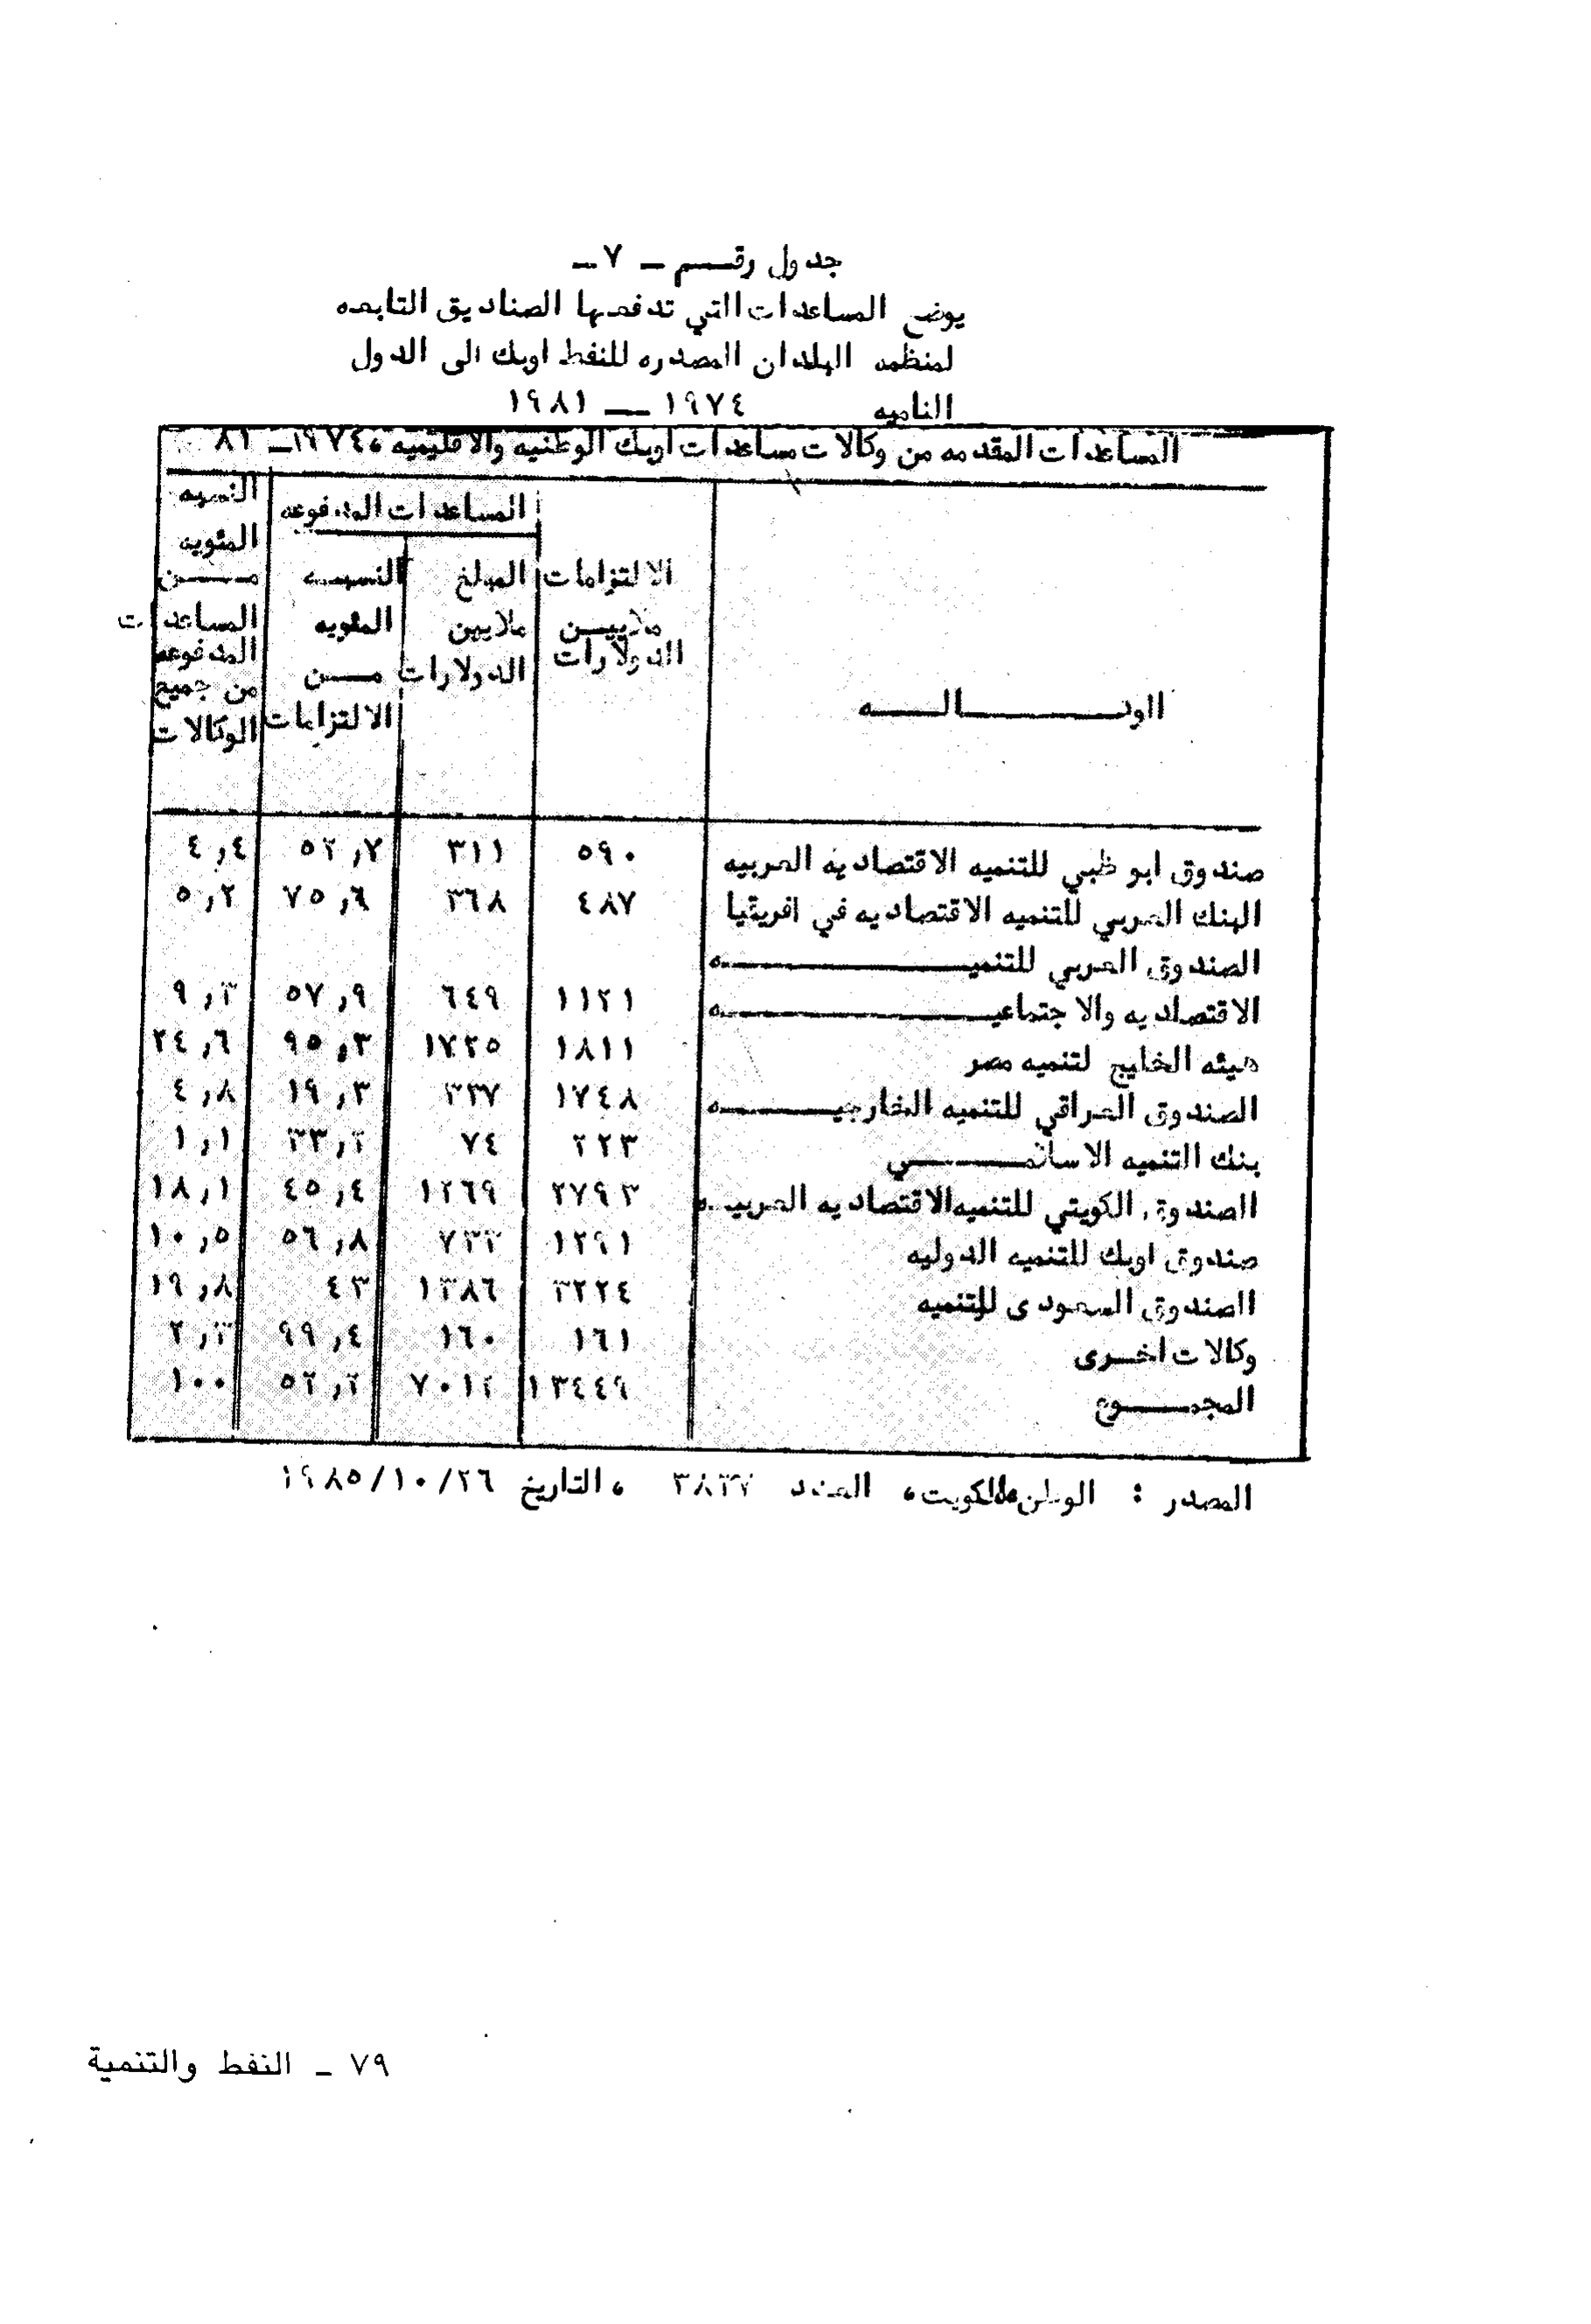 جدول رقم - ٧ -
يوضح المساعدات التي تدفعها الصناديق التابعه
لمنظمه البلدان المصدره للنفط اوبك الى الدول
الناميه ١٩٧٤ - ١٩٨١
المساعدات المقدمه من وكالات مساعدات اوبك الوطنيه والاقليميه ، ١٩٧٤ - ٨١
الوكاله
الالتزامات
ملايين
الدولارات
المساعدات المدفوعه
المبلغ
ملايين
الدولارات
النسبه
المئويه
من
الالتزامات
النسبه
المئويه
من
المساعدات
المدفوعه
من جميع
الوكالات
صندوق ابو ظبي للتنميه الاقتصاديه العربيه ٥٩٠ ٣١١ ٥٢,٧ ٤,٤
البنك العربي للتنميه الاقتصاديه في افريقيا ٤٨٧ ٣٦٨ ٧٥,٦ ٥,٢
الصندوق العربي للتنميه
الاقتصاديه والاجتماعيه ١١٢١ ٦٤٩ ٥٧,٩ ٩,٣
هيئه الخليج لتنميه مصر ١٨١١ ١٧٢٥ ٩٥,٣ ٢٤,٦
الصندوق العراقي للتنميه الخارجيه ١٧٤٨ ٣٣٧ ١٩,٣ ٤,٨
بنك التنميه الاسلامي ٢٢٣ ٧٤ ٣٣,٢ ١,١
الصندوق الكويتي للتنميه الاقتصاديه العربيه ٢٧٩٣ ١٢٦٩ ٤٥,٤ ١٨,١
صندوق اوبك للتنميه الدوليه ١٢٩١ ٧٣٣ ٥٦,٨ ١٠,٥
الصندوق السعودى للتنميه ٣٢٢٤ ١٣٨٦ ٤٣ ١٩,٨
وكالات اخرى ١٦١ ١٦٠ ٩٩,٤ ٢,٣
المجموع ١٣٤٤٩ ٧٠١٢ ٥٢,٢ ١٠٠
المصدر : الوطن الكويت، العدد ، التاريخ ١٩٨٥/١٠/٢٦
٧٩ - النفط والتنمية